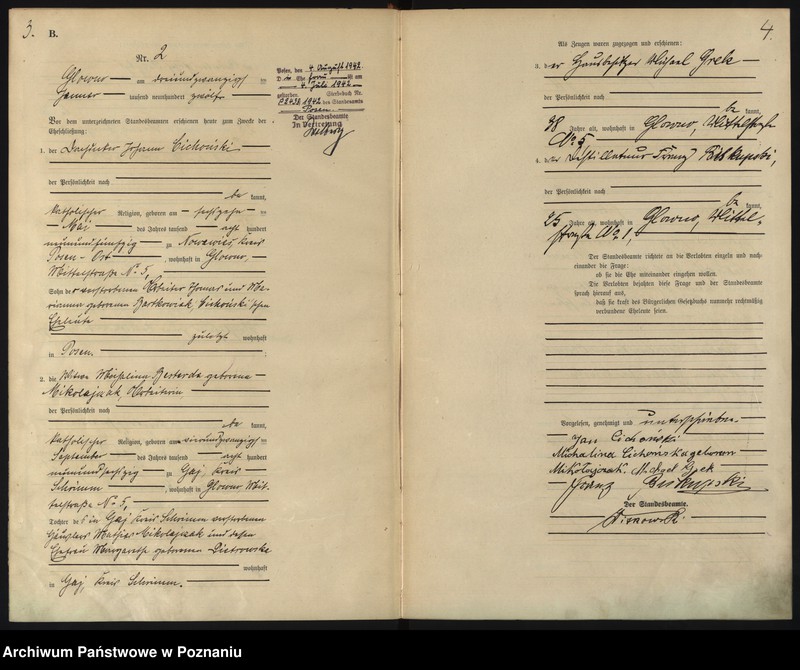 3.
B.
Nr. 2
Glowno am dreiundzwanzigsten
Januar tausend neunhundert zwölf
Vor dem unterzeichneten Standesbeamten erschienen heute zum Zwecke der
Eheschließung:
1. der Johann Cichoński
der Persönlichkeit nach
be kannt,
katholischer Religion, geboren am sechszehnten
Mai des Jahres tausend acht hundert
neunundfünfzig zu Kreis
Posen-Ost, wohnhaft in Glowno,
Mittelstraße No 5,
Sohn der verstorbenen Arbeiter Thomas und Ma-
rianna geborenen Bartkowiak Cichoński'schen
Eheleute
zuletzt wohnhaft
in Posen.
2. die Witwe Michalina geborene
Mikołajczak, Arbeiterin
der Persönlichkeit nach
be kannt,
katholischer Religion, geboren am vierundzwanzigsten
September des Jahres tausend acht hundert
neunundsechzig zu Gaj, Kreis
Schrimm, wohnhaft in Glowno, Mit-
telstraße No 5,
Tochter des in Gaj Kreis Schrimm verstorbenen
Häuslers Mathias Mikołajczak und dessen
Ehefrau Margaretha geborenen Pietrowska
wohnhaft
in Gaj, Kreis Schrimm.
Posen, den 4. August 1942.
D ie Ehe frau ist am
4. Juli 1942
gestorben. Sterbebuch Nr.
1942 des Standesamts
Posen
Der Standesbeamte
In Vertretung
4.
Als Zeugen waren zugezogen und erschienen:
3. der Hausbesitzer Michael Grek
der Persönlichkeit nach
be kannt,
38 Jahre alt, wohnhaft in Glowno, Mittelstraße
No 5
4. der Franz
der Persönlichkeit nach
be kannt,
25 Jahre alt, wohnhaft in Glowno, Mittel-
straße No 1,
Der Standesbeamte richtete an die Verlobten einzeln und nach-
einander die Frage:
ob sie die Ehe miteinander eingehen wollen.
Die Verlobten bejahten diese Frage und der Standesbeamte
sprach hierauf aus,
daß sie kraft des Bürgerlichen Gesetzbuchs nunmehr rechtmäßig
verbundene Eheleute seien.
Vorgelesen, genehmigt und unterschrieben.
Jan Cichoński
Michalina Cichońska geboren
Mikołajczak. Michael Grek
Franz
Der Standesbeamte.
Archiwum Państwowe w Poznaniu